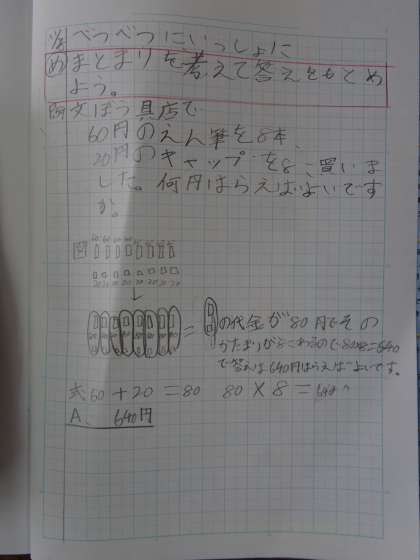 べつべつにいっしょに
め まとまりを考えて答えをもとめ
よう。
問 文ぼう具店で
60円のえん筆を8本、
20円のキャップを8こ買いま
した。何円はらえばよいです
か。
図 60 60 60 60
20 20 20 20 20 20 20 20
= の代金が80円でその
かたまりが8こあるので80×8=640
で答えは640円はらえばよいです。
式 60+20=80 80×8=640
A. 640円